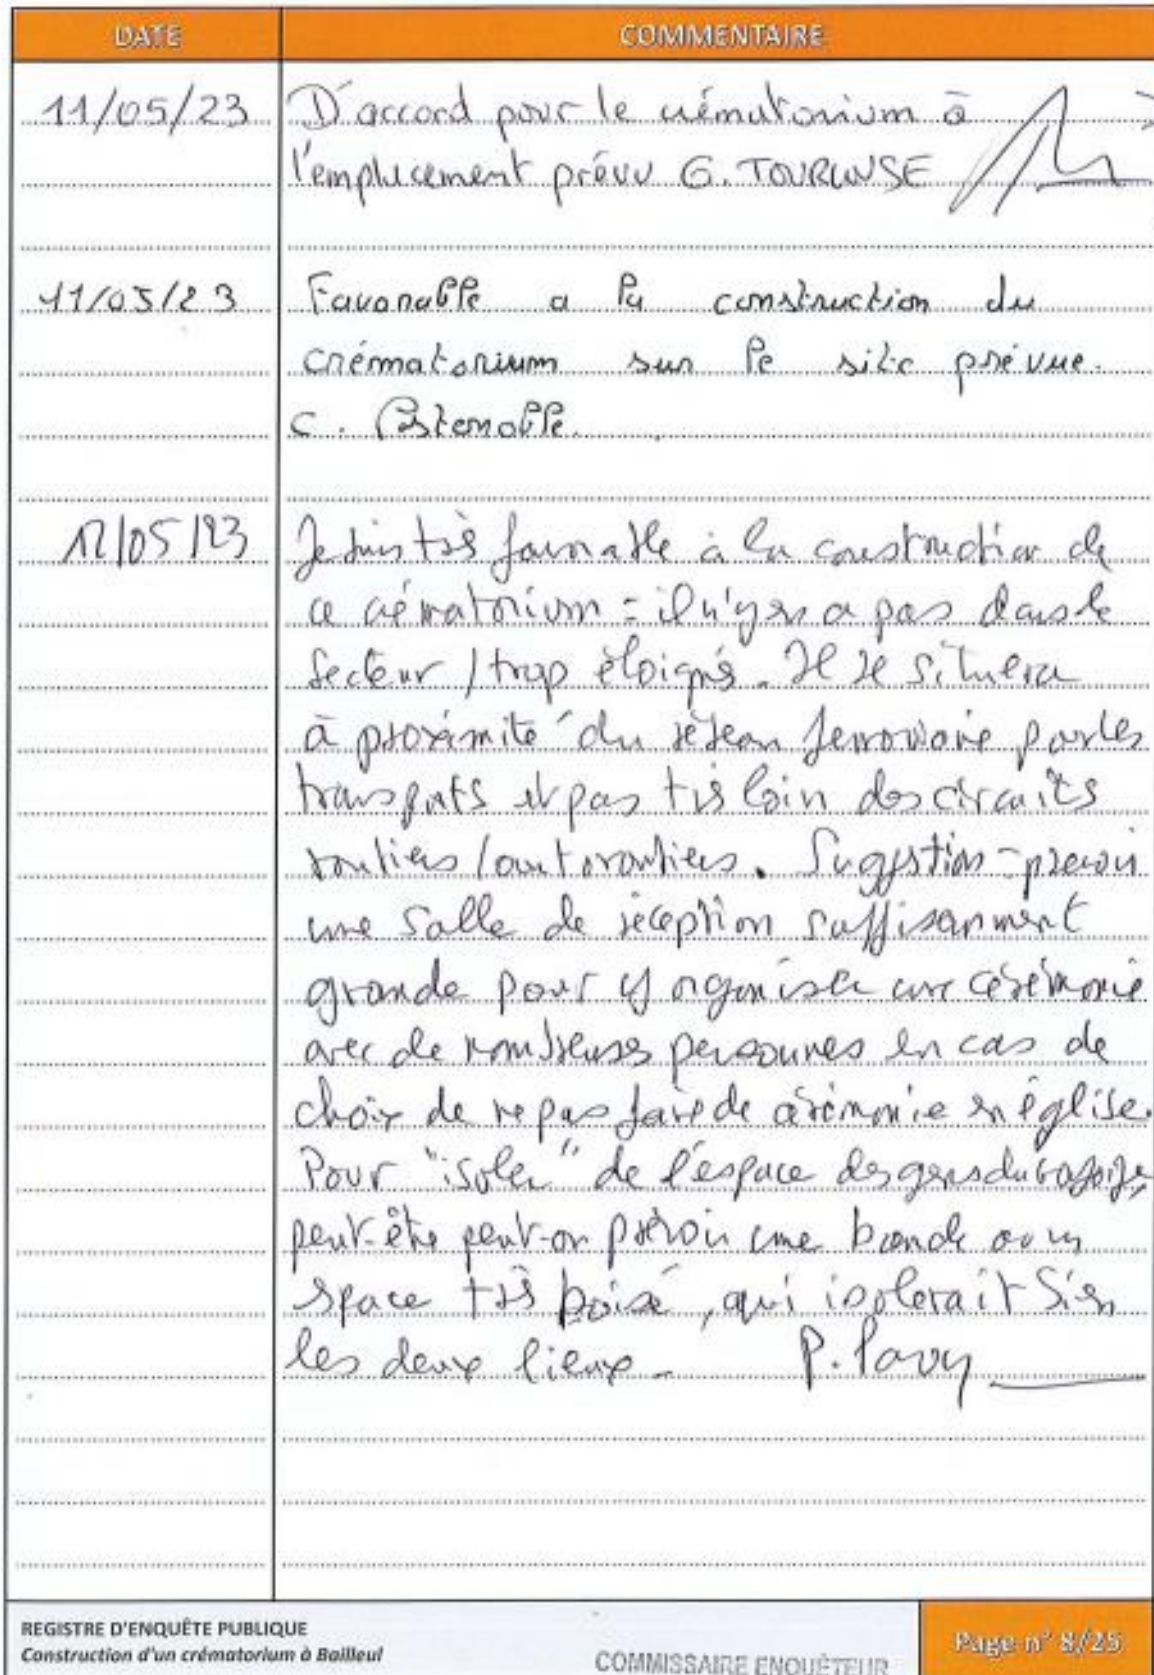 DATE
COMMENTAIRE
11/05/23
D'accord pour le crématorium à
l'emplacement prévu G. TOURLOUSE
11/05/23
Favorable a la construction du
crématorium sur le site prévue.
C.
12/05/23
Je suis très favorable à la construction de
ce crématorium = il n'y en a pas dans le
secteur / trop éloigné. Il se situera
à proximité du réseau ferroviaire pour les
transports et pas très loin des circuits
routiers / autoroutiers. Suggestion = prévoir
une salle de réception suffisamment
grande pour y organiser une cérémonie
avec de nombreuses personnes en cas de
choix de ne pas faire de cérémonie en église.
Pour "isoler" de l'espace des gens du voyage,
peut-être peut-on prévoir une bande ou un
space très boisé, qui isolerait bien
les deux lieux - P. Pavy
REGISTRE D'ENQUÊTE PUBLIQUE
Construction d'un crématorium à Bailleul
COMMISSAIRE ENQUÊTEUR
Page n° 8/25